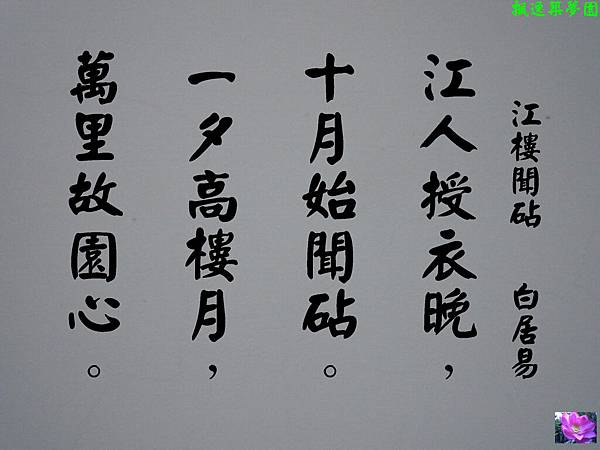 飆速築夢園
江樓聞砧 白居易
江人授衣晚，
十月始聞砧。
一夕高樓月，
萬里故園心。